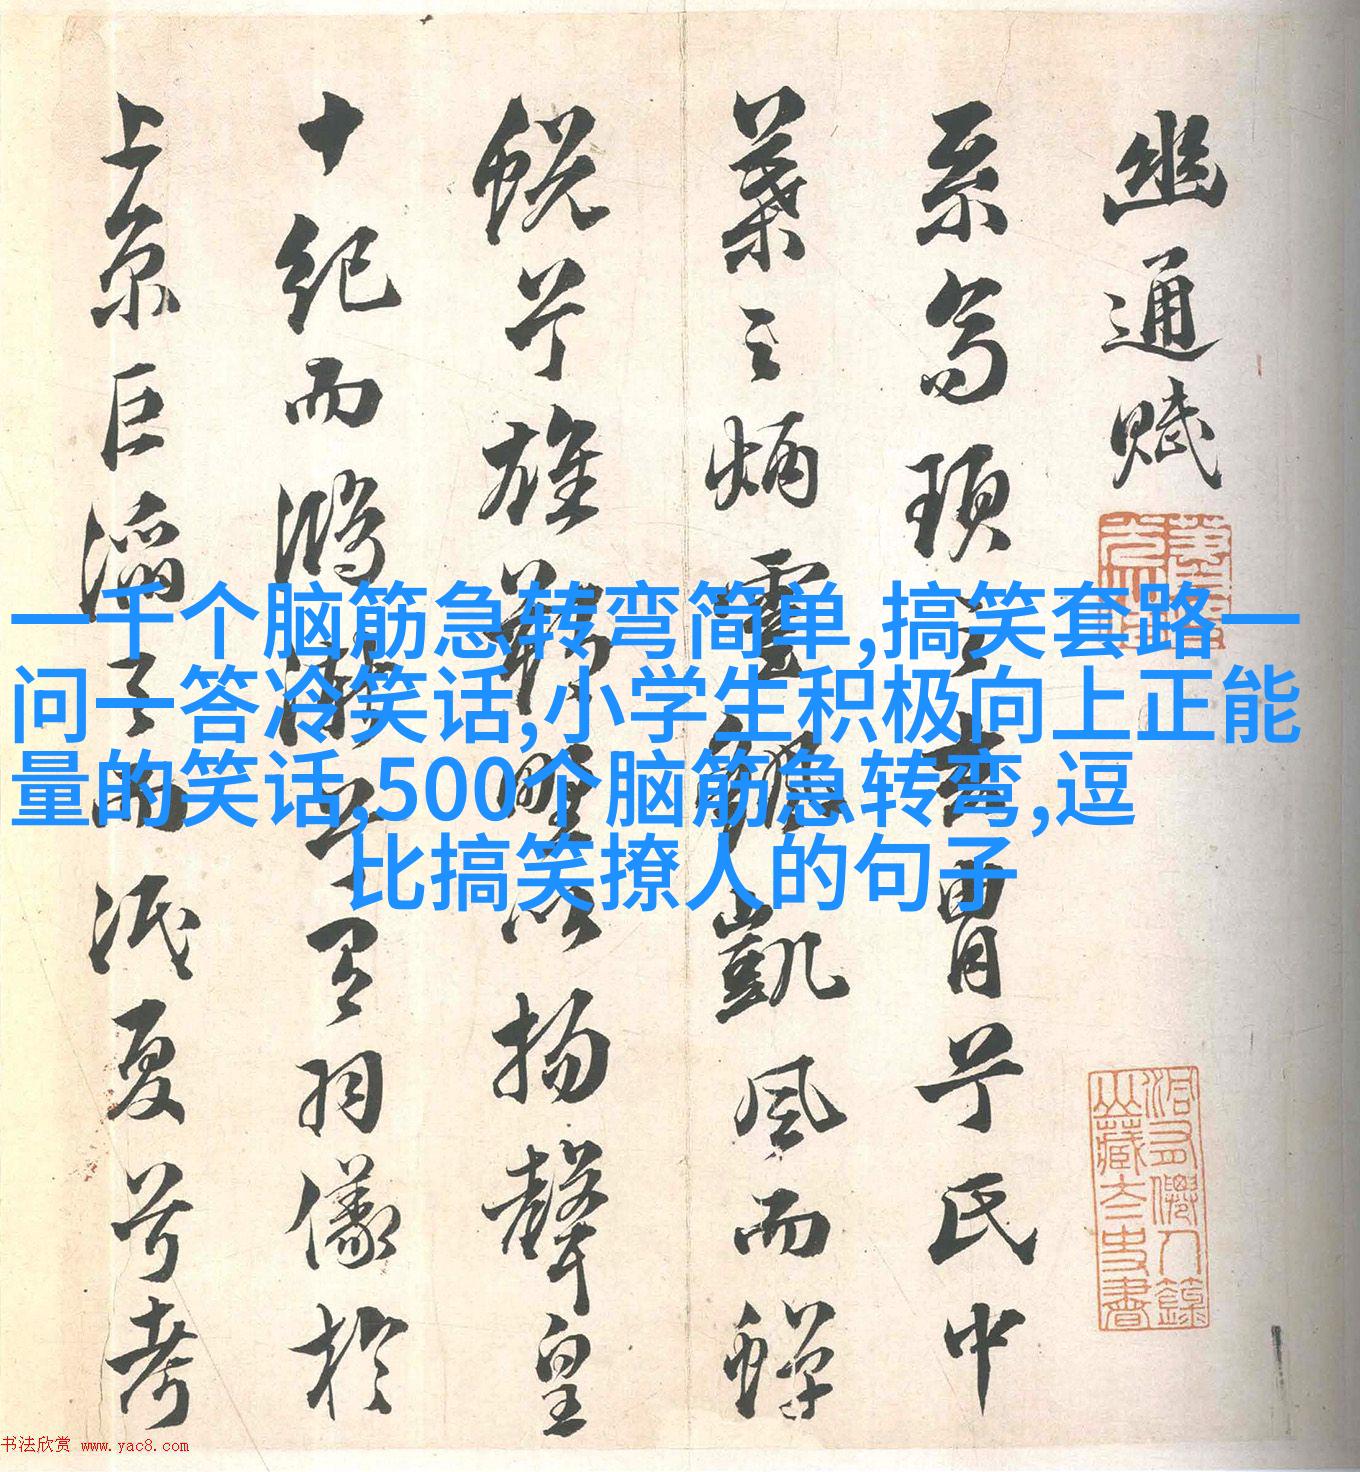 幽通賦
系高頊之玄胄兮氏中
葉之炳靈繇凱風而蟬
蛻兮雄朔野以揚聲皇
十紀而鴻漸兮有羽儀於
上京巨滔天而泯夏兮考
一千个脑筋急转弯简单,搞笑套路一
问一答冷笑话,小学生积极向上正能
量的笑话,500个脑筋急转弯,逗
比搞笑撩人的句子
书法欣赏 www.yac8.com